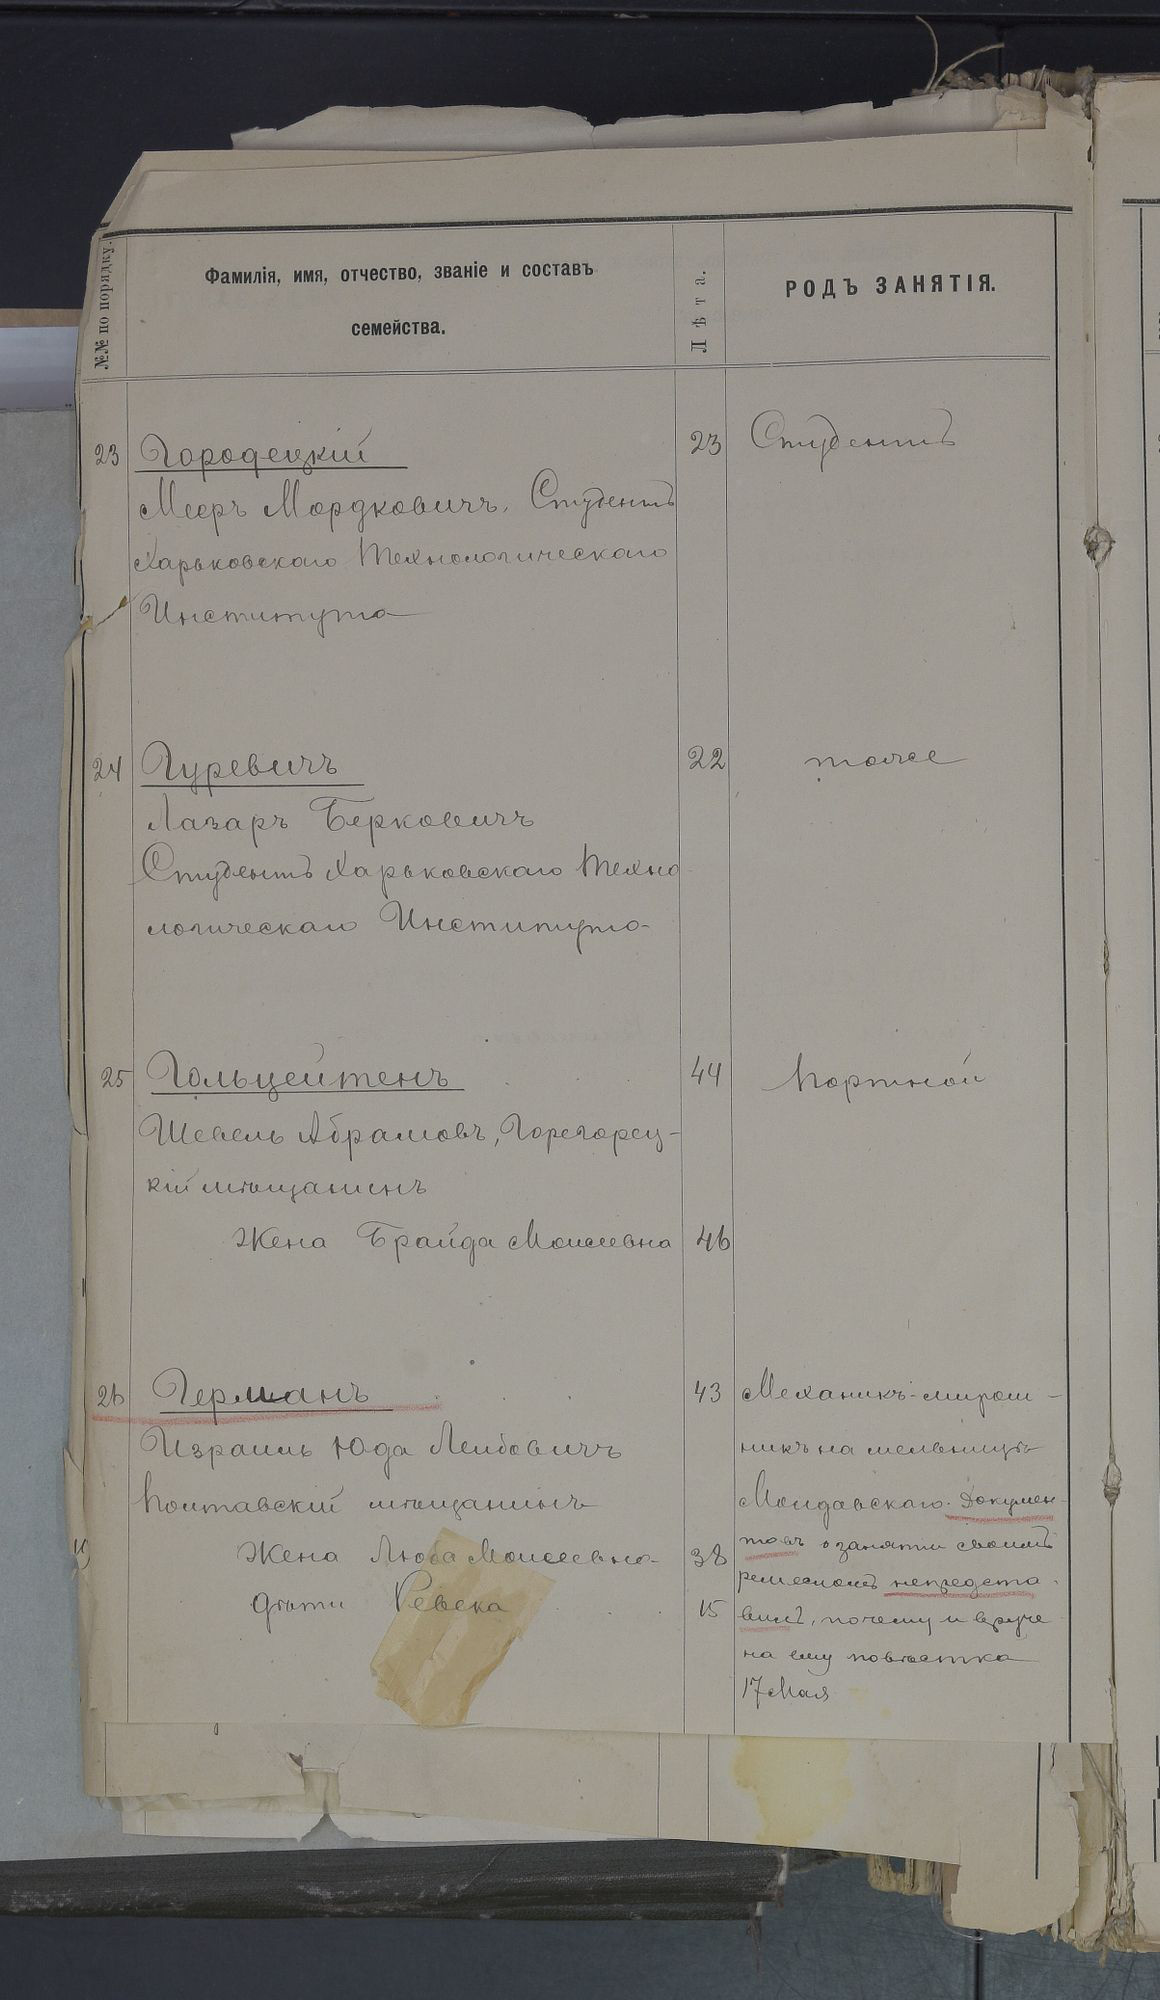 №№ по порядку.
Фамилія, имя, отчество, званіе и составъ
семейства.
Лѣта.
РОДЪ ЗАНЯТІЯ.
23 Городецкій 23 Студентъ
Мееръ Мордковичъ, Студентъ
Харьковскаго Технологическаго
Института
24 Гуревичъ 22 тоже
Лазаръ Берковичъ
Студентъ Харьковскаго Техно
логическаго Института
25 Гольцейтенъ 44 Портной
Шевель Абрамовъ, Горегорец-
кій мѣщанинъ
Жена Брайда Моисеевна 46
26 Германъ 43 Механикъ-мирош-
Израиль Юда Лейбовичъ никъ на мельницѣ
Полтавскій мѣщанинъ Молдавскаго. Докумен-
Жена Люба Моисеевна 38 товъ о занятіи своимъ
ремесломъ непредста-
дѣти Ревека 15 вилъ, почему и вруче
на ему повѣстка
17 Мая